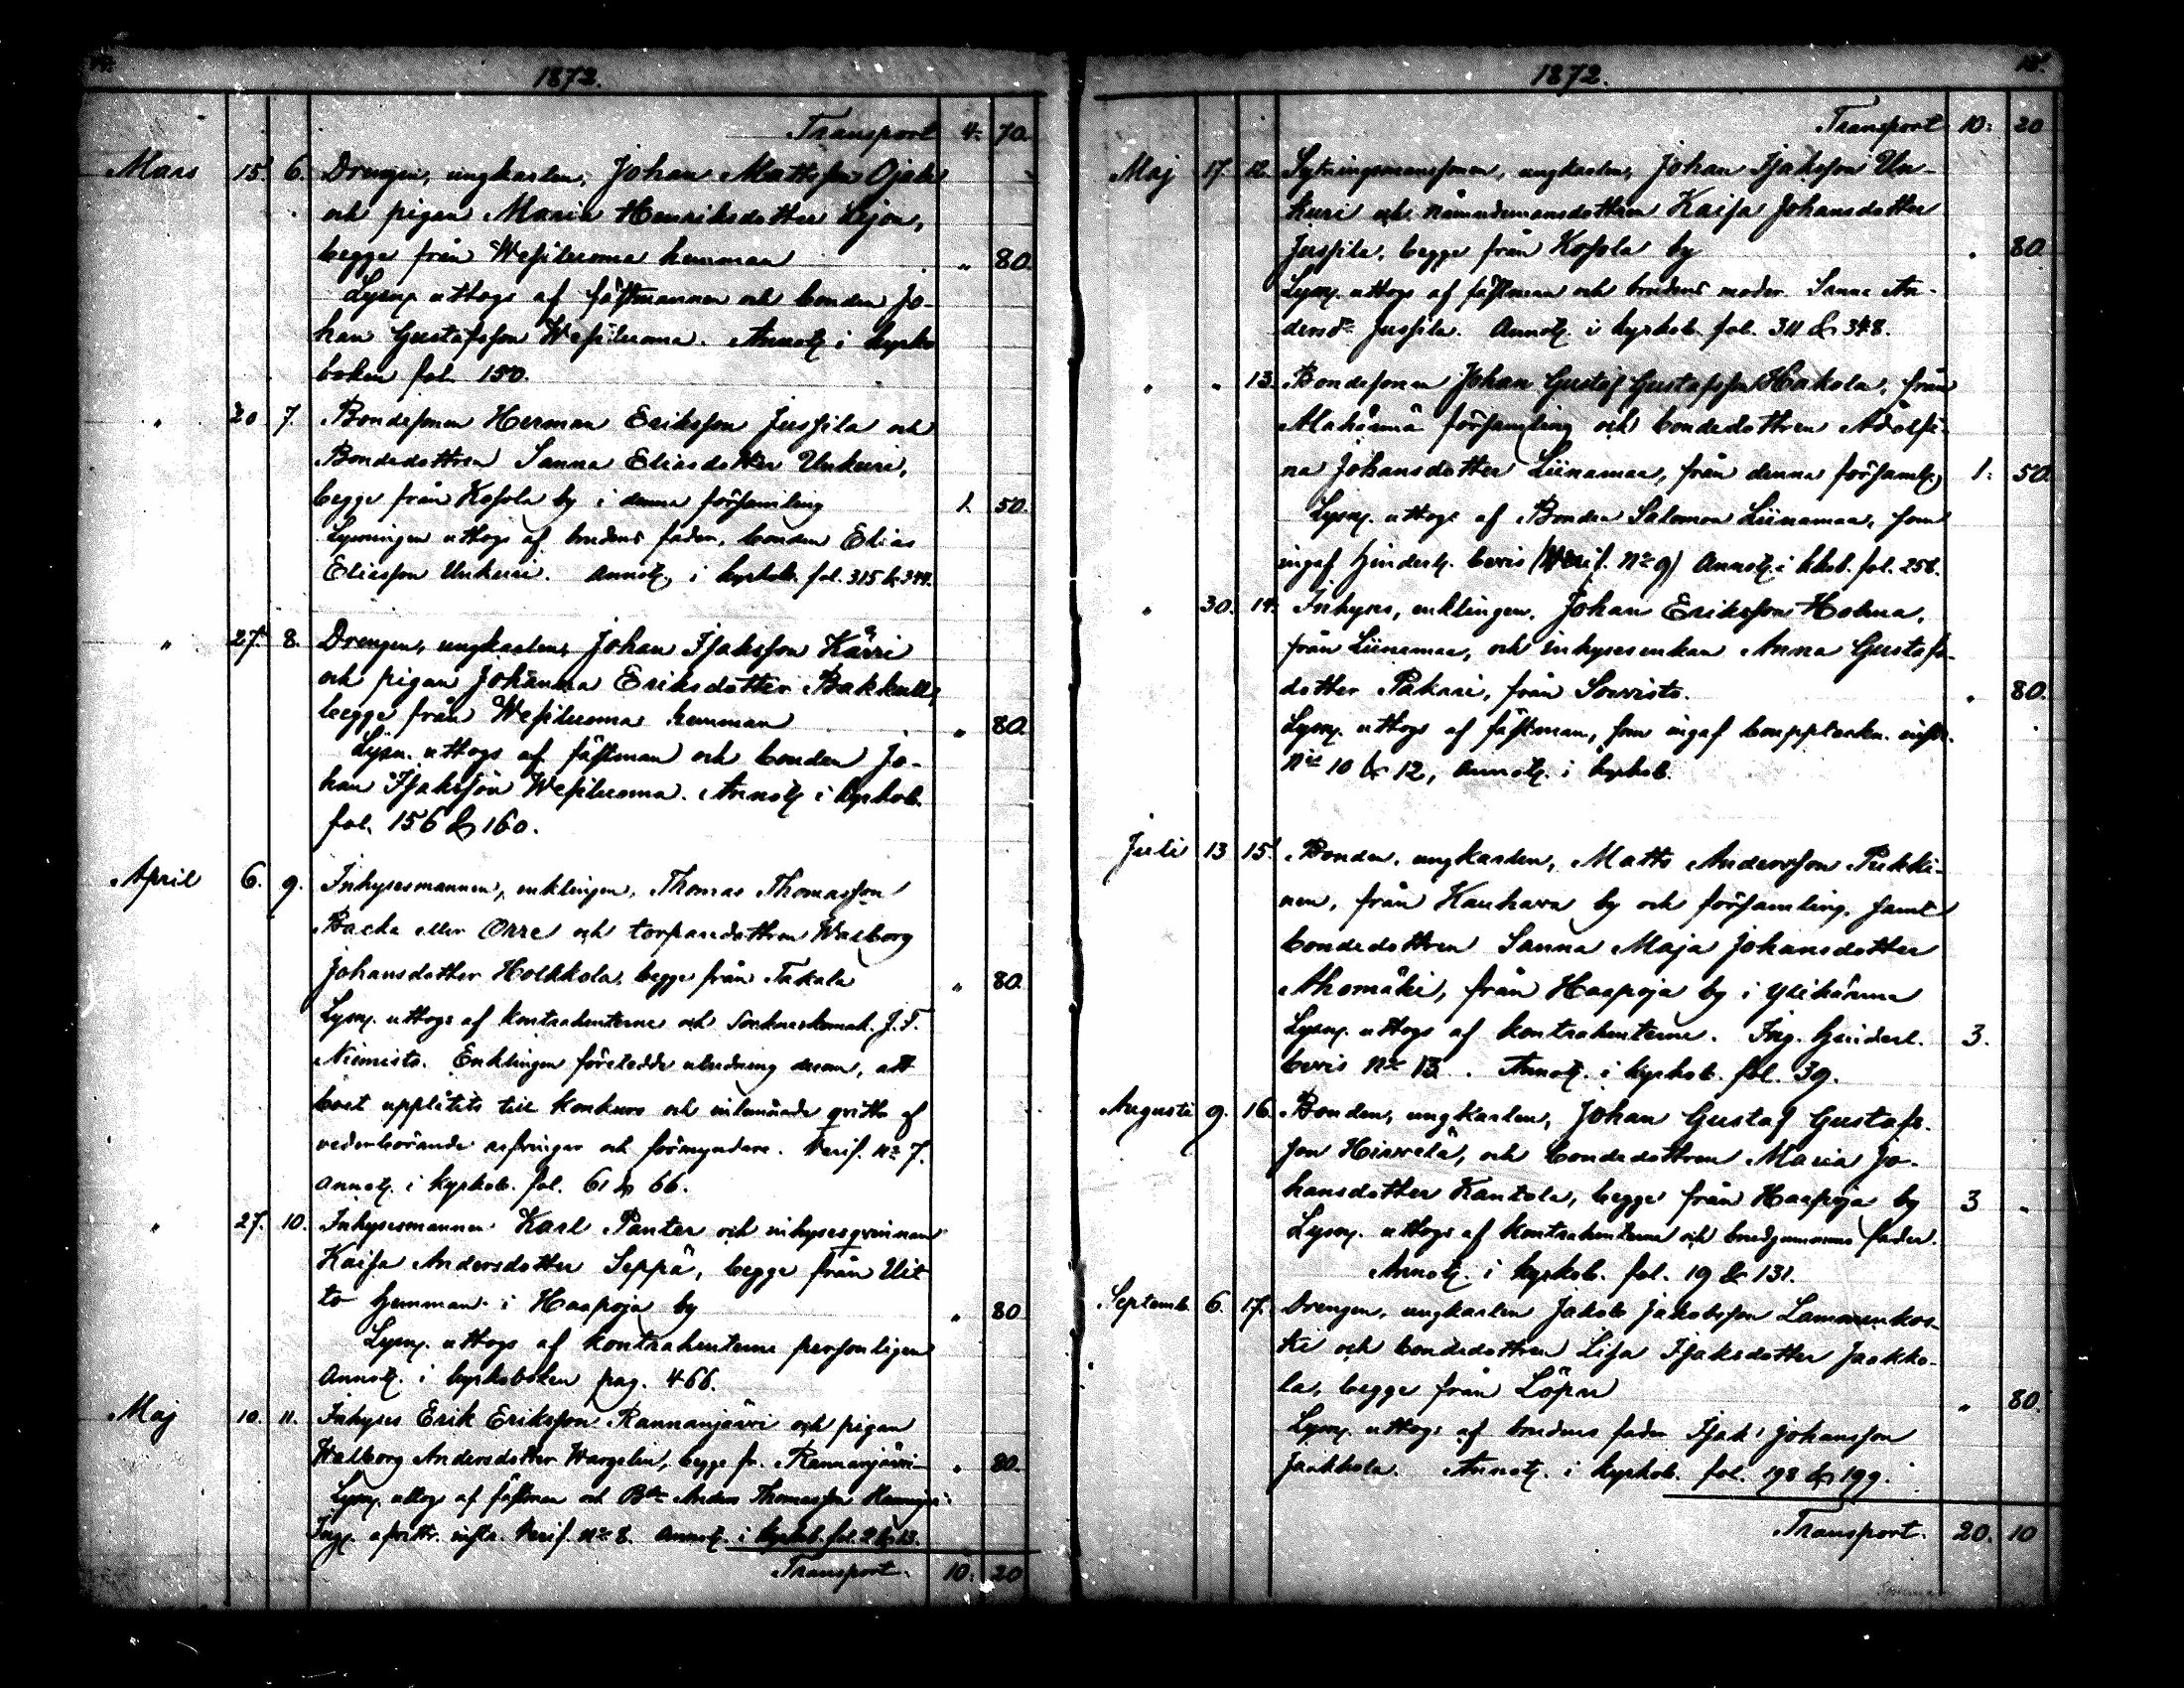 1872.
Transport 4. 70.
Mars 15. 6. Drengen, ungkarlen, Johan Mattsson Ojala
och pigan Maria Henriksdotter Lejon,
begge från Wesiluoma hemman " 80.
Lysng. uttogs af fästmannen och bonden Jo-
han Gustafsson Wesiluoma. Annotg. i kyrko
boken fol. 150.
" 20 7. Bondesonen Herman Eriksson Jussila och
Bondedottren Sanna Eliasdotter Unkuri,
begge från Kosola by i denna församling 1. 50.
Lysningen uttogs af brudens fader, bonden Elias
Eliasson Unkuri. Annotg. i kyrkob. fol. 315 & 344.
" 27. 8. Drengen, ungkarlen, Johan Isaksson Kärri
och pigan Johanna Eriksdotter Bakkull,
begge från Wesiluoma hemman " 80.
Lysn. uttogs af fästman och bonden Jo-
han Isaksson Wesiluoma. Annotg. i kyrkob.
fol. 156 & 160.
April 6. 9. Inhysesmannen, enklingen, Thomas Thomasson
Backa eller Orre och torparedottren Walborg
Johansdotter Holkkola, begge från Takala " 80.
Lysng. uttogs af kontrahenterne och Socknesksmak. J. F.
Niemistö. Enklingen företedde utredning derom, att
boet upplåtits till konkurs och inlemnade qvitto af
vederbörande arfvingar och förmyndare. Verif. No 7.
Annotg. i kyrkob. fol. 61 & 66.
" 27. 10. Inhysesmannen Karl Panter och inhysesqvinnan
Kaisa Andersdotter Seppä, begge från Uit
to hemman i Haapoja by " 80
Lysng. uttogs af kontrahenterne personligen
Annotg. i kyrkoboken pag. 466.
Maj 10. 11. Inhyses Erik Eriksson Rannanjärvi och pigan
Walborg Andersdotter Wargelin, begge fr. Rannanjärvi " 80.
Lysng. uttogs af fästman och Bdn Anders Thomasson
Ing. afvittr. instr. Verif. No 8. Annotg. i kyrkob. fol. 2 & 13.
Transport. 10. 20
1872.
Transport 10. 20
Maj 17. 12. Sytningsmanssonen, ungkarlen, Johan Isaksson Un-
kuri och nämndemansdottren Kaisa Johansdotter
Jussila, begge från Kosola by " 80
Lysng. uttogs af fästman och brudens moder Sanna An-
dersdr Jussila. Annotg. i kyrkob. fol. 311 & 348.
" " 13. Bondesonen Johan Gustaf Gustafsson Hakola, från
Alahärmä församling och bondedottren Adolfi-
na Johansdotter Liinamaa, från denna församlg. 1. 50.
Lysng. uttogs af Bonden Salomon Liinamaa, som
ingaf hinderlg. bevis (Verif. No 9) Annotg. i kkob. fol. 256.
" 30. 14. Inhyses, enklingen, Johan Eriksson Holma,
från Liinamaa, och inhysesenkan Anna Gustafs-
dotter Pakari, från Sorvisto. " 80.
Lysng. uttogs af fästman, som ingaf bouppteckn. instr.
No 10 & 12, Annotg. i kyrkob.
Juli 13 15. Bonden, ungkarlen, Matts Andersson Pukki-
nen, från Kauhava by och församling, samt
bondedottren Sanna Maja Johansdotter
Ahomäki, från Haapoja by i Ylihärmä
Lysng. uttogs af kontrahenterne. Ing. hinderl. 3.
bevis No 13. Annotg. i kyrkob. fol. 39.
Augusti 9. 16. Bonden, ungkarlen, Johan Gustaf Gustafs-
son Hirvelä, och bondedottren Maria Jo-
hansdotter Kantola, begge från Haapoja by 3 "
Lysng. uttogs af kontrahenterne och brudgummens fader.
Annotg. i kyrkob. fol. 19 & 131.
Septemb. 6. 17. Drengen, ungkarlen Jakob Jakobsson Lamminkos-
ki och bondedottren Lisa Isaksdotter Jaakko-
la, begge från Löpar " 80.
Lysng. uttogs af brudens fader Isak Johansson
Jaakkola. Annotg. i kyrkob. fol. 198 & 199.
Transport. 20. 10